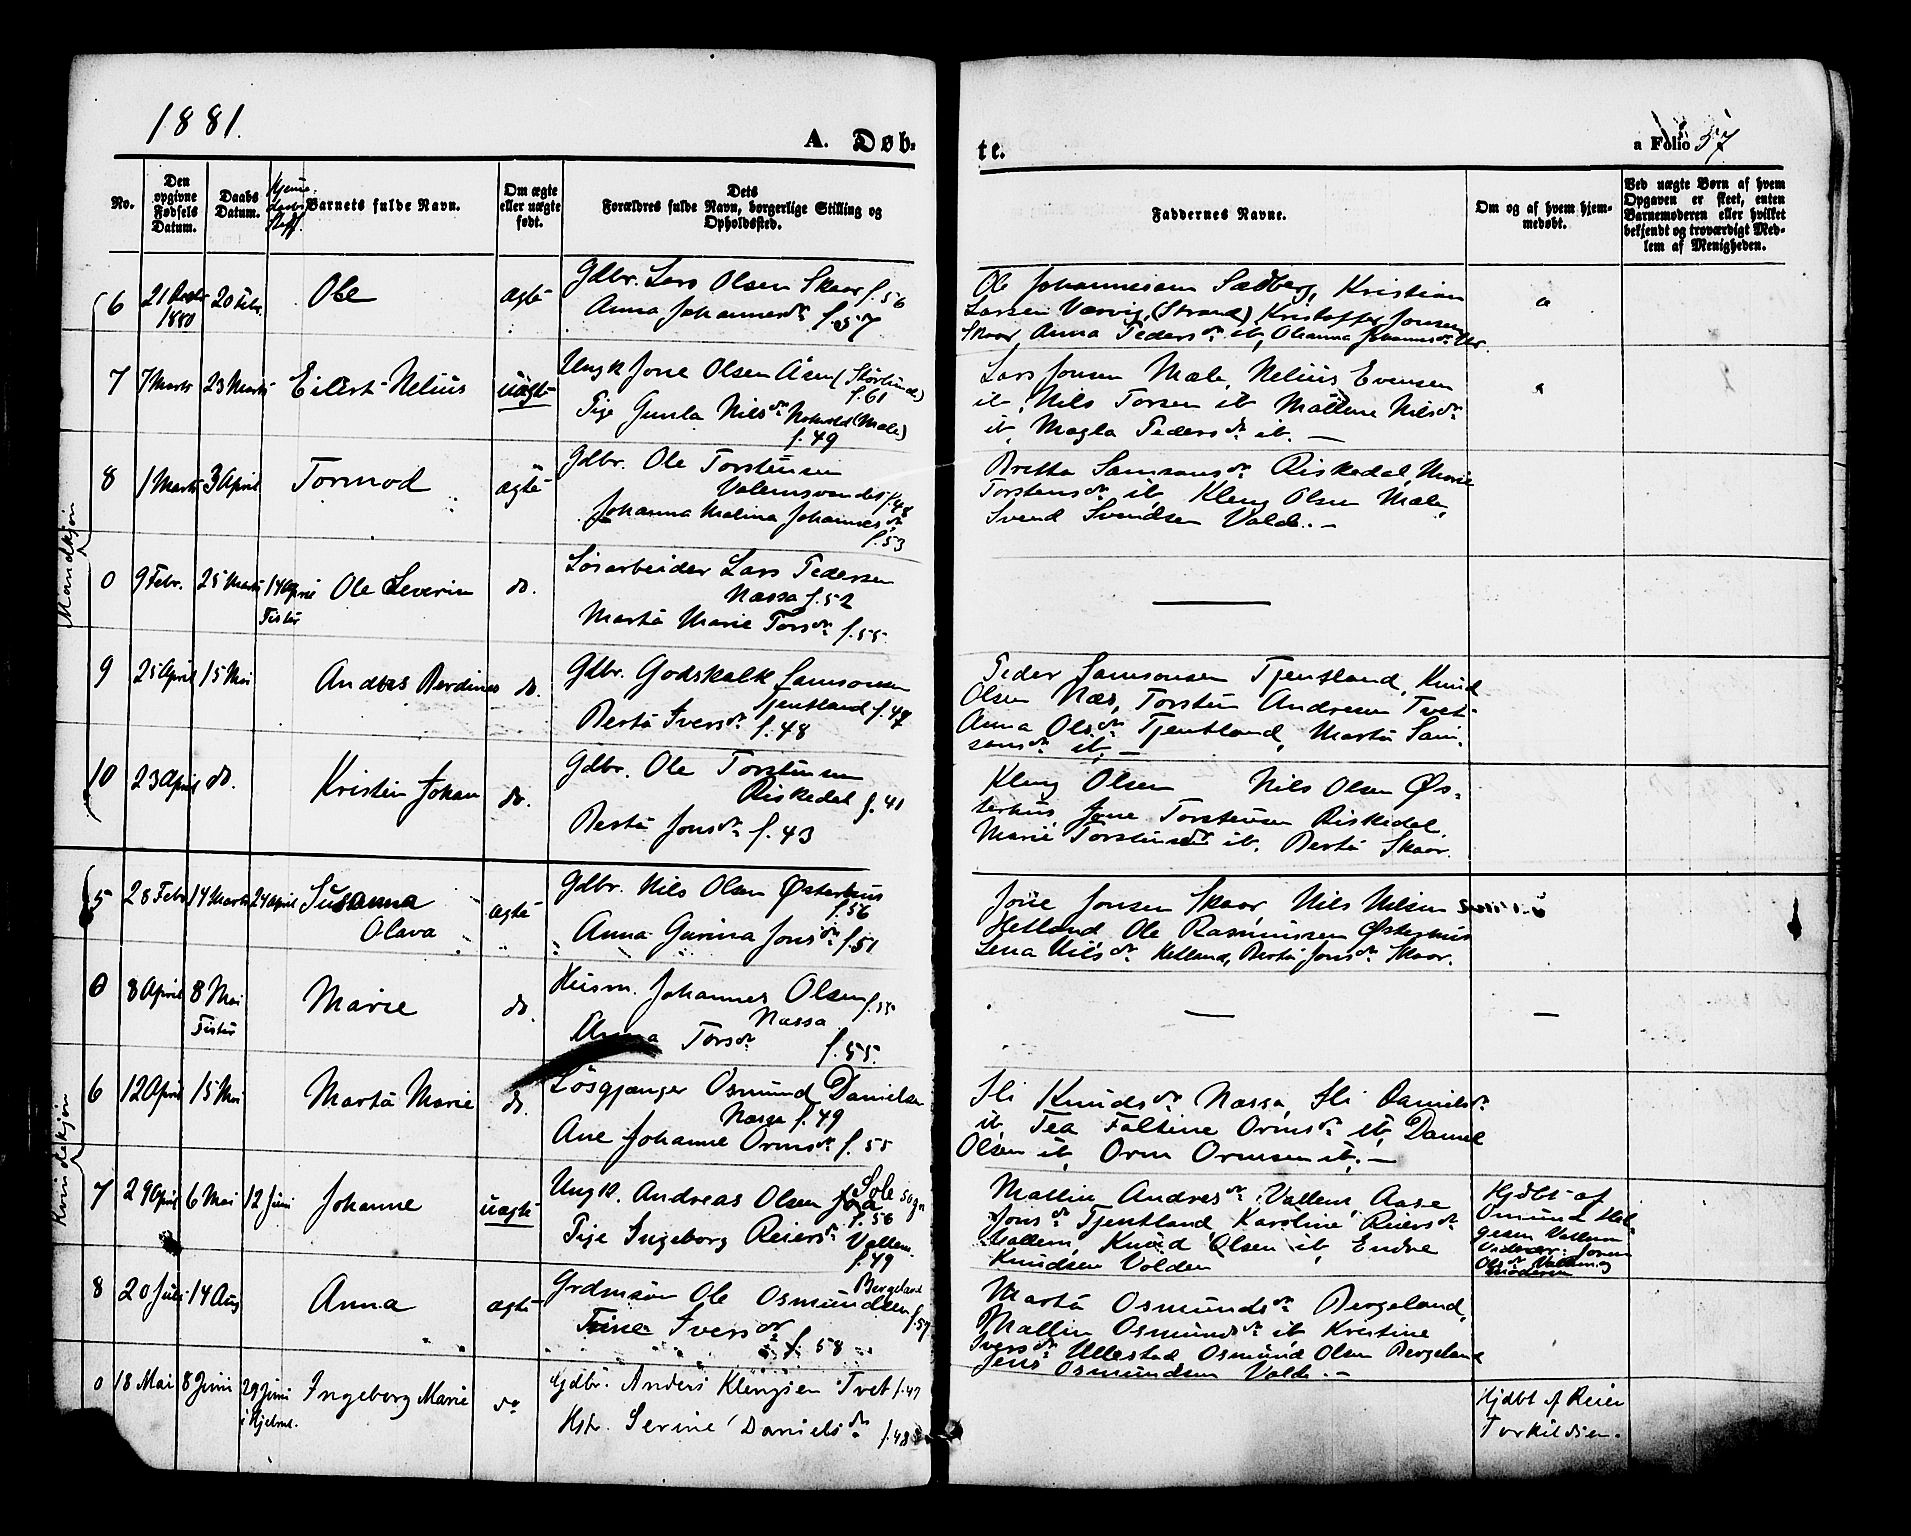 1881.
A. Døb-
te.
a Folio 57
No.
Den opgivne Fødsels Datum.
Daabs Datum.
Barnets fulde Navn.
Om ægte eller uægte født.
Dets Forældres fulde Navn, borgerlige Stilling og Opholdssted.
Faddernes Navne.
Om og af hvem hjemmedøbt.
Ved uægte Børn af hvem Opgaven er skeet, enten Barnemoderen eller hvilket bekjendt og troværdigt Medlem af Menigheden.
Mandkjøn
6
1880
20 Febr.
Ole
ægte
Gdbr. Lars Olsen Skaar f. 56
Anna Johannesdr f. 57
Ole Johannesen Sædberg, Kristian
Larsen Værvig (Strand), Kristoffer Jonsen
Skaar, Anna Pedersdr ib, Oleanna Johannesdr
7
7 Marts
23 Marts
Eilert Nelius
uægte
Ungk Jone Olsen Åsen
f. 61
Pige Gunla Nilsdr (Mæle)
f. 49
Lars Jonsen Mæle, Nelius Evensen
ib, Nils Torsen ib Mallene Nilsdr
ib, Magla Pedersdr ib. —
8
1 Marts
3 April
Tormod
ægte
Gdbr. Ole Torstensen
f. 48
Johanna Malina Johannesdr
f. 53
Britta Samsonsdr Riskedal, Marie
Torstensdr ib, Kleng Olsen Mæle,
Svend Svendsen Valde. —
0
9 Febr.
25 Marts
14 April
Fister
Ole Severin
do.
Løsarbeider Lars Pedersen
Næssa f. 52
Marta Marie Torsdr f. 55.
—
9
25 April
15 Mai
Andreas Berdines
do.
Gdbr. Godskalk Samsonsen
Tjentland f. 47
Berta Iversdr f. 48
Peder Samsonsen Tjentland, Knud
Olsen Næs, Torsten Andresen Tvet
Anna Olsdr Tjentland, Marta Sam-
sonsdr ib. —
10
23 April
do.
Kristen Johan
do.
Gdbr. Ole Torstensen
Riskedal f. 41
Berta Jonsdr f. 43
Kleng Olsen Nils Olsen Øs-
terhus, Jone Torstensen Riskedal.
Marie Torstensdr ib. Berta Skaar.
Kvindekjøn
5
28 Febr
14 Marts
24 April
Susanna
Olava
ægte
Gdbr. Nils Olsen Østerhus
f. 56
Anna Gurina Jonsdr f. 51
Jone Jonsen Skaar, Nils Nilsen
Hetland Ole Rasmussen Østerhus
Lena Nilsdr Hetland, Berta Jonsdr Skaar.
0
8 April
8 Mai
Fister
Marie
do.
Husm. Johannes Olsen f. 55
Næssa
Anna Torsdr f. 55.
—
—
6
12 April
15 Mai
Marta Marie
do.
Løsgjænger Osmund Danielsen
Næssa f. 49
Ane Johanne Ormsdr f. 55
Sli Knudsdr Næssa, Sli Danielsdr
ib, Tea Faltine Ormsdr ib, Daniel
Olsen ib, Orm Ormsen ib. —
7
29 April
6 Mai
12 Juni
Johanne
uægte
Ungk. Andreas Olsen Sole Sogn
f. 56
Pige Ingeborg Reiersdr Vallem.
f. 49
Mallin Andresdr Vallem, Aase
Jonsdr Tjentland, Karoline Reiersdr
Vallem, Knud Olsen ib, Endre
Knudsen Volden
Hjdbt af
Osmund Hel-
gesen Vallem
8
20 Juli
14 Aug
Anna
ægte
Grdmsøn Ole Osmundsen
Bergeland
f. 57
Trine Iversdr f. 58
Marta Osmundsdr Bergeland,
Mallin Osmundsdr ib, Kristine
Iversdr Ullestad Osmund Olsen Bergeland
Jens Osmundsen Valde. —
0
18 Mai
8 Juni
29 Juni
i Hjelmel.
Ingeborg Marie
do
Gdbr. Anders Klengsen Tvet f. 47
Hstr. Serine Danielsdr f. 48
Hjdbt af Reier
Torkildsen.